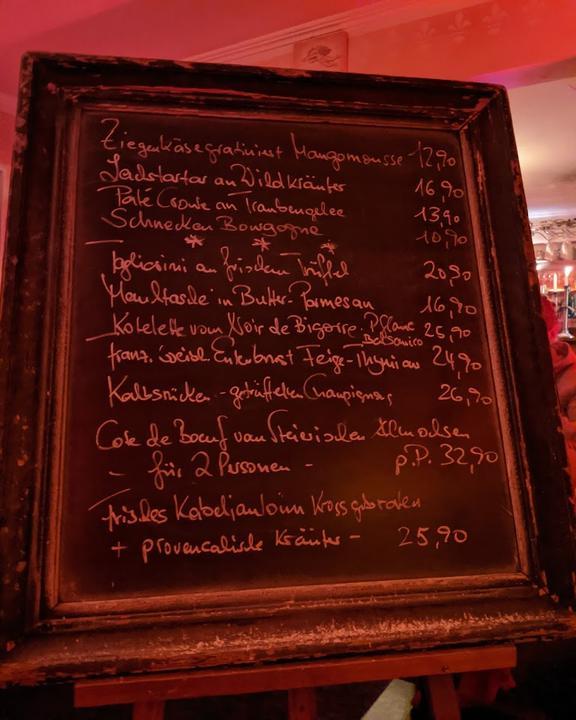 Ziegenkäse gratiniert Mangomousse 12,90
Lachstartar an Wildkräuter 16,90
Paté Croute an Traubengelee 13,90
Schnecken Bourgogne 10,90
* * *
Tagliorini an frischem Trüffel 20,90
Maultasche in Butter-Parmesan 16,90
Kotelette vom Noir de Bigorre. Pflaume 25,90
Balsamico
franz. weibl. Entenbrust Feige-Thymian 24,90
Kalbsrücken - getrüffelten Champignons 26,90
Cote de Boeuf vom Steirischen Almochsen
- für 2 Personen - p.P. 32,90
Frisches Kabeljaufilet Kross gebraten
+ provencalische Kräuter - 25,90